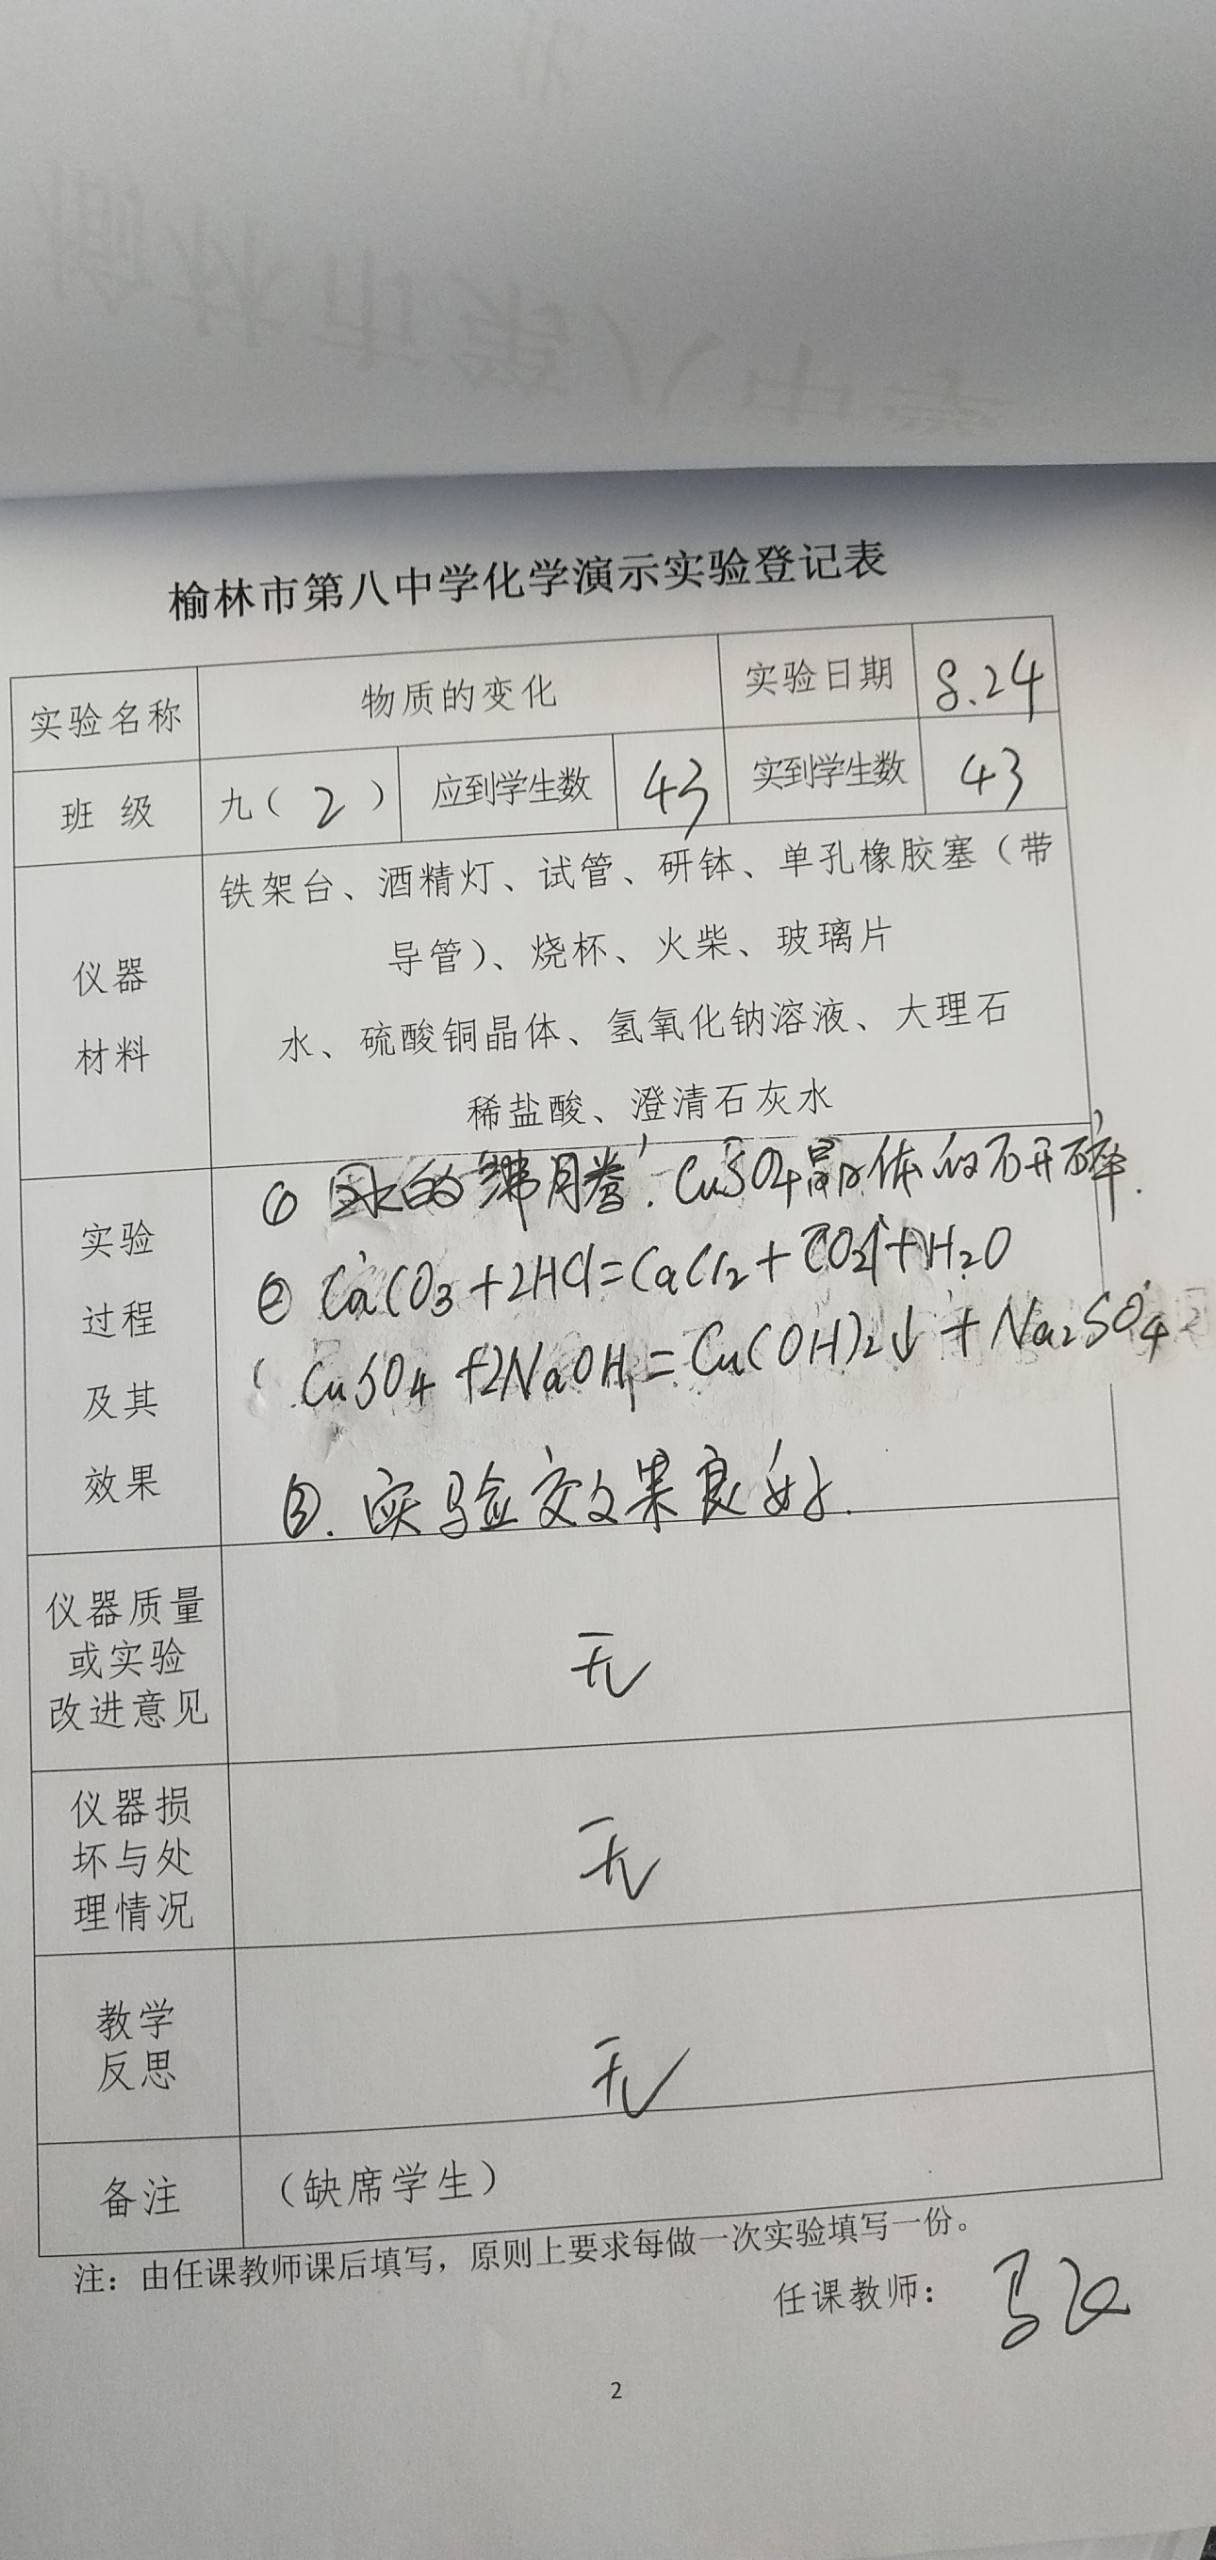 榆林市第八中学化学演示实验登记表
实验名称 物质的变化 实验日期 8.24
班 级 九（2） 应到学生数 43 实到学生数 43
铁架台、酒精灯、试管、研钵、单孔橡胶塞（带
导管）、烧杯、火柴、玻璃片
仪器
材料
水、硫酸铜晶体、氢氧化钠溶液、大理石
稀盐酸、澄清石灰水
实验
过程
及其
效果
① 水的沸腾.CuSO4晶体的研碎.
② CaCO3+2HCl=CaCl2+CO2↑+H2O
CuSO4+2NaOH=Cu(OH)2↓+Na2SO4
③.实验效果良好.
仪器质量
或实验
改进意见
无
仪器损
坏与处
理情况
无
教学
反思
无
备注 （缺席学生）
注：由任课教师课后填写，原则上要求每做一次实验填写一份。
任课教师：马
2